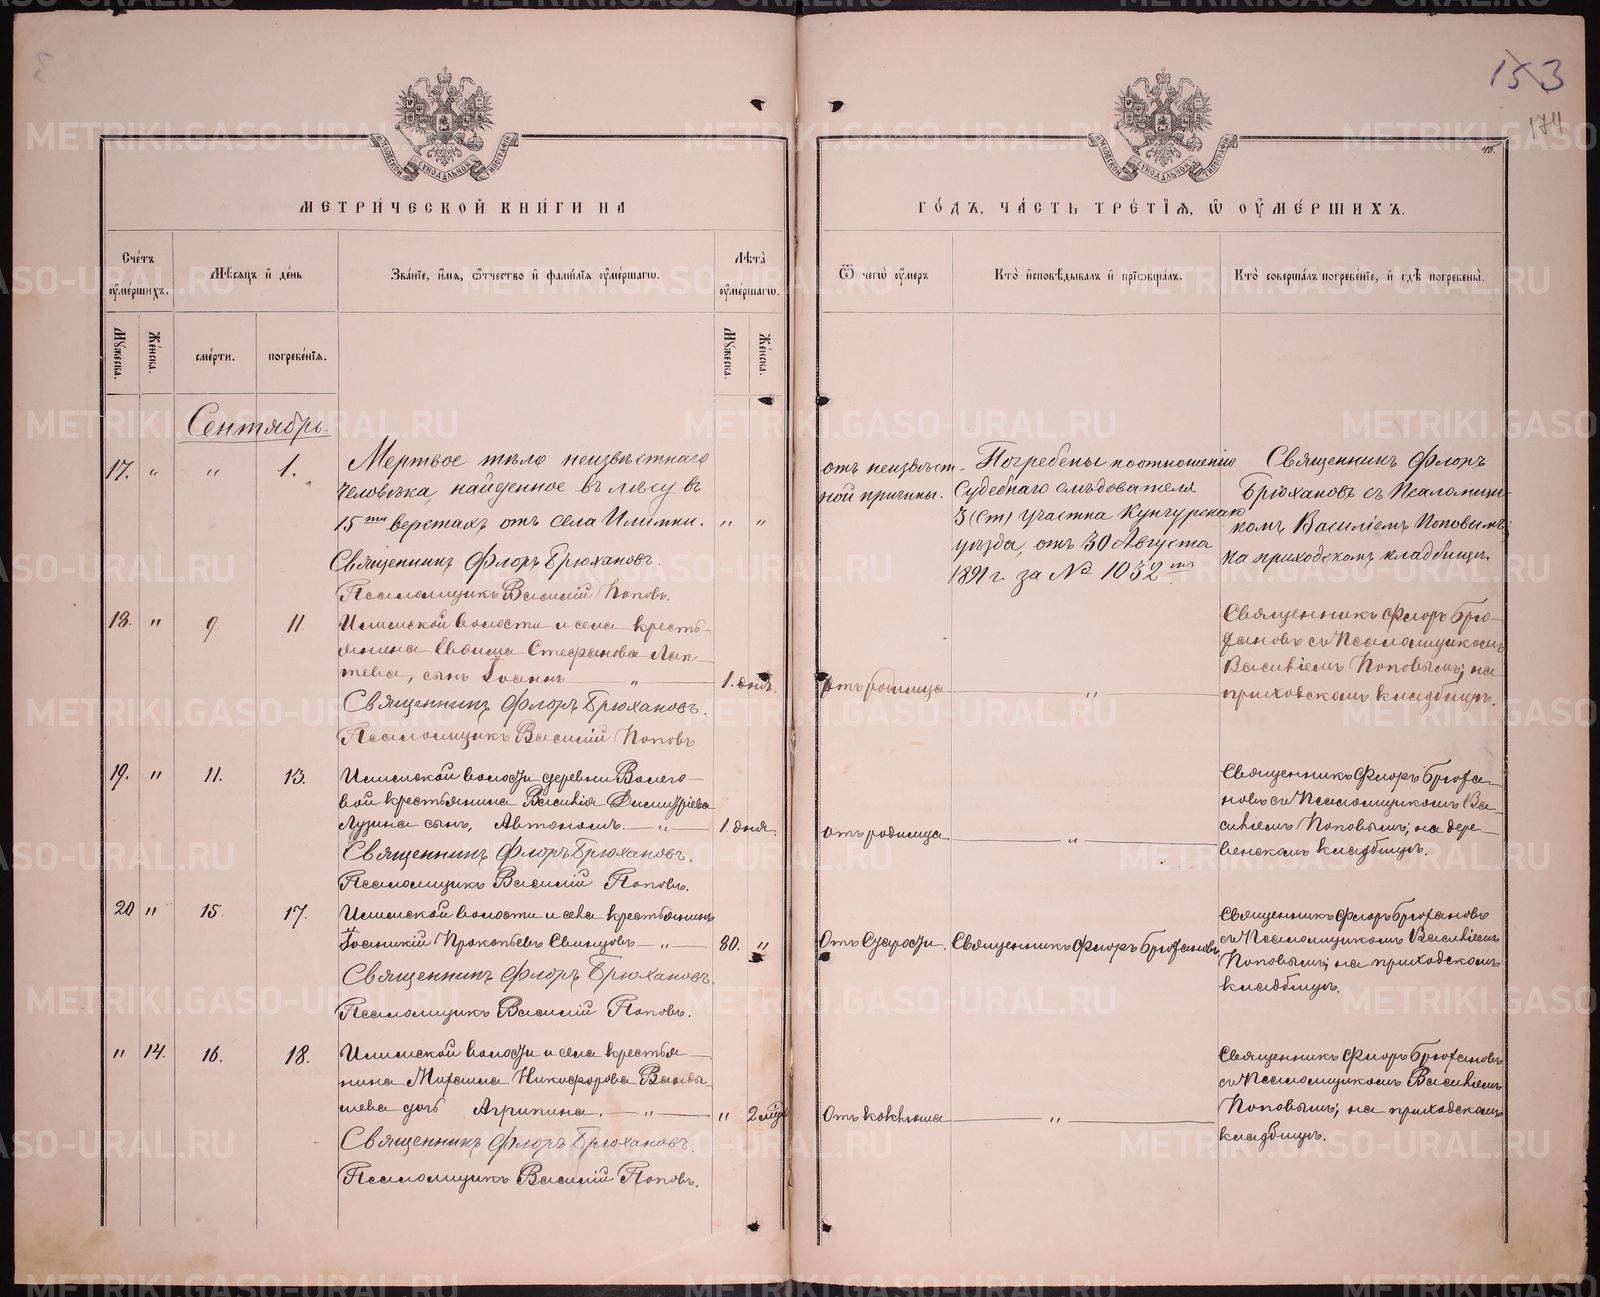 153
174
МЕТРИ́ЧЕСКОЙ КНИ́ГИ НА
ГО́ДЪ, ЧА́СТЬ ТРЕ́ТІѦ, Ѿ ОУ҆МЕ́РШИХЪ.
Сче́тъ оу҆ме́ршихъ.
Мѣ́сяцъ и҆ де́нь
Зва́нїе, и҆́мя, ѻ҆́тчество и҆ фами́лїя оу҆ме́ршагѡ.
Лѣ́та оу҆ме́ршагѡ.
Ѿ чегѡ̀ оу҆́меръ
Кто̀ и҆сповѣ́дывалъ и҆ прїѡбща́лъ.
Кто̀ соверша́лъ погребе́нїе, и҆ гдѣ̀ погребены̀.
Мꙋ́жеска.
Же́нска.
сме́рти.
погребе́нїѧ.
Мꙋ́жеска.
Же́нска.
Сентябрь.
17. " " 1. Мертвое тѣло неизвѣстнаго
человѣка, найденное въ лѣсу въ
15ти верстахъ отъ села Илимки. " "
Священникъ Флоръ Брюхановъ.
Псаломщикъ Василій Поповъ.
отъ неизвѣст-
ной причины.
Погребены по отношенію
Судебнаго слѣдователя
3 (ст) участка Кунгурскаго
уѣзда, отъ 30 Августа
1891 г. за № 1032мъ
Священникъ Флоръ
Брюхановъ съ Псаломщи-
комъ Василіемъ Поповымъ
на приходскомъ кладбищѣ.
18. " 9 11. Илимской волости и села кресть-
янина Евоима Стефанова Лап-
тева, сынъ Іоаннъ " 1. дня.
Священникъ Флоръ Брюхановъ.
Псаломщикъ Василій Поповъ
отъ родимца "
Священникъ Флоръ Брю-
хановъ съ Псаломщикомъ
Василіемъ Поповымъ; на
приходскомъ кладбищѣ.
19. " 11. 13. Илимской волости деревни
вой крестьянина Василія Димитріева
Лузина сынъ, Автономъ. " 1. дня.
Священникъ Флоръ Брюхановъ.
Псаломщикъ Василій Поповъ.
отъ родимца "
Священникъ Флоръ Брюха-
новъ съ Псаломщикомъ Ва-
силіемъ Поповымъ; на дере-
венскомъ кладбищѣ.
20 " 15. 17. Илимской волости и села крестьянинъ
Іоанникій Прокопьевъ Свинцовъ " 80. "
Священникъ Флоръ Брюхановъ.
Псаломщикъ Василій Поповъ.
Отъ Старости. Священникъ Флоръ Брюхановъ
Священникъ Флоръ Брюхановъ
съ Псаломщикомъ Василіемъ
Поповымъ; на приходскомъ
кладбищѣ.
" 14. 16. 18. Илимской волости и села крестья-
нина Михаила Никифорова Ванды-
шева дочь Агрипина. " " 2 мѣс.
Священникъ Флоръ Брюхановъ.
Псаломщикъ Василій Поповъ.
Отъ коклюша "
Священникъ Флоръ Брюхановъ
съ Псаломщикомъ Василіемъ
Поповымъ; на приходскомъ
кладбищѣ.
METRIKI.GASO-URAL.RU